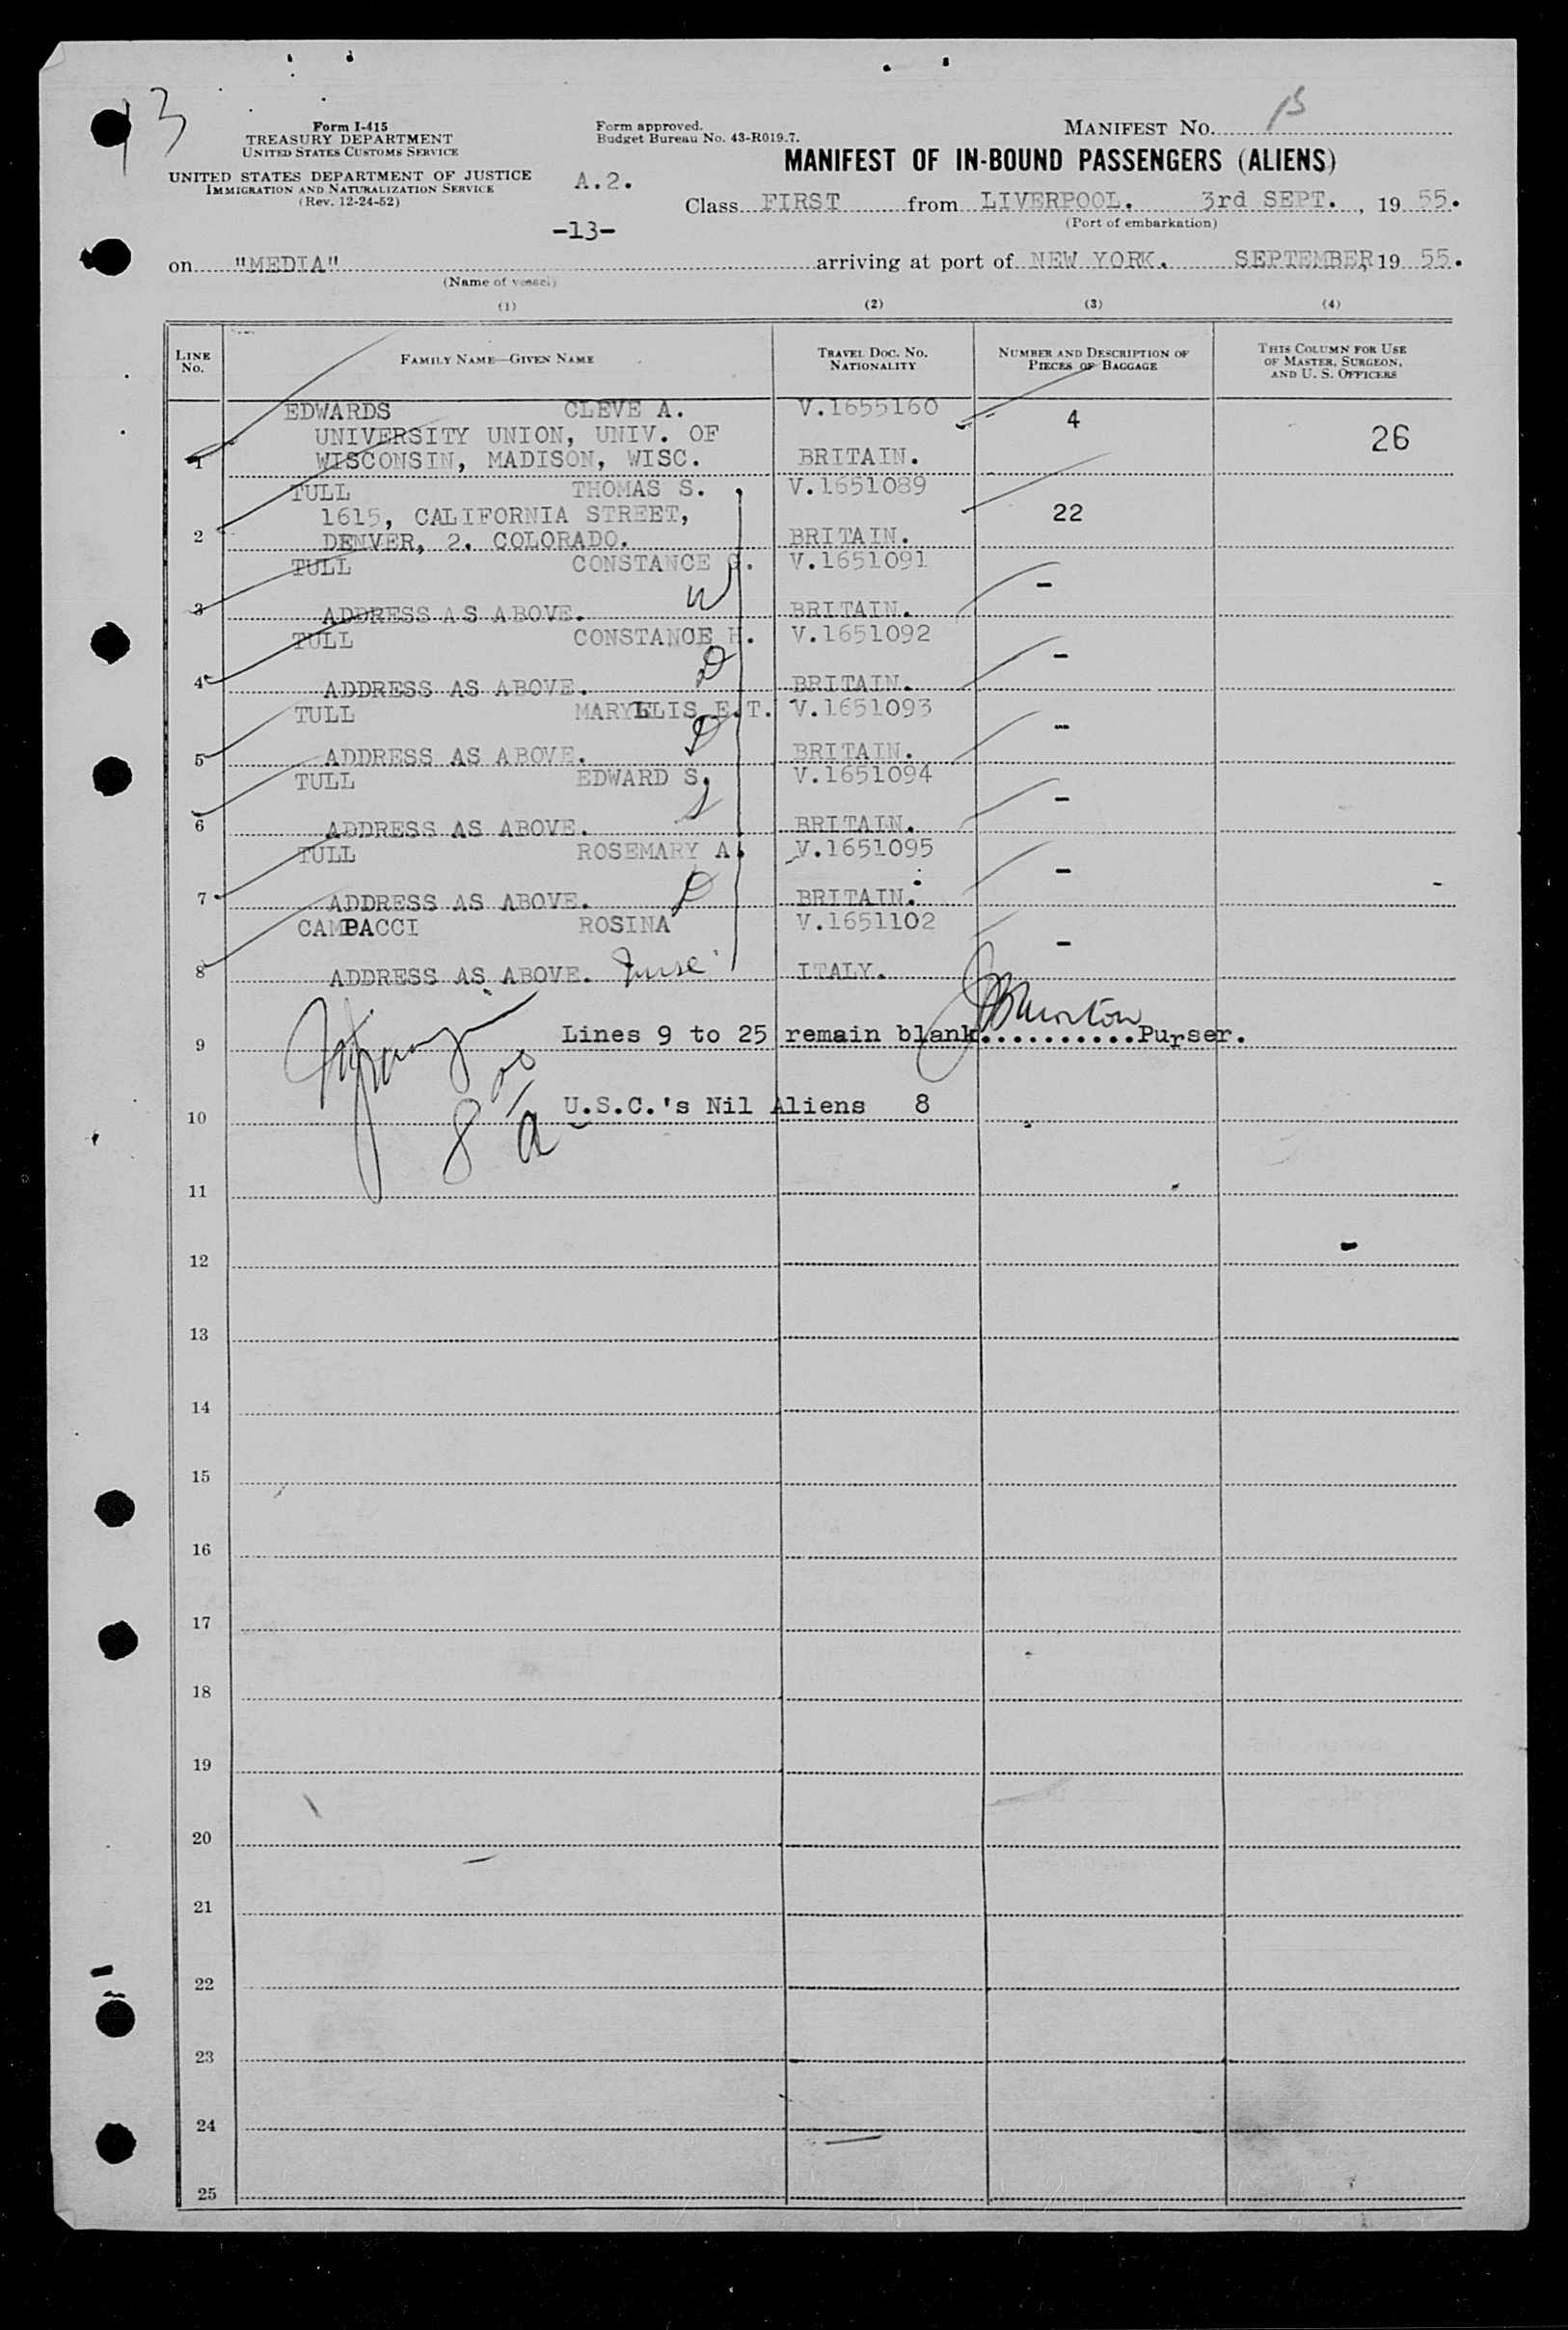 13
Form I-415
TREASURY DEPARTMENT
UNITED STATES CUSTOMS SERVICE
UNITED STATES DEPARTMENT OF JUSTICE
IMMIGRATION AND NATURALIZATION SERVICE
(Rev. 12-24-52)
Form approved.
Budget Bureau No. 43-R019.7.
A.2.
-13-
MANIFEST NO. 13
MANIFEST OF IN-BOUND PASSENGERS (ALIENS)
Class FIRST from LIVERPOOL. 3rd SEPT. , 19 55.
(Port of embarkation)
on "MEDIA" arriving at port of NEW YORK. SEPTEMBER, 19 55.
(Name of vessel)
(1) (2) (3) (4)
LINE No. FAMILY NAME—GIVEN NAME TRAVEL DOC. NO. NATIONALITY NUMBER AND DESCRIPTION OF PIECES OF BAGGAGE THIS COLUMN FOR USE OF MASTER, SURGEON, AND U. S. OFFICERS
EDWARDS CLEVE A. V.1655160 4
UNIVERSITY UNION, UNIV. OF 26
1 WISCONSIN, MADISON, WISC. BRITAIN.
TULL THOMAS S. V.1651089
1615, CALIFORNIA STREET, 22
2 DENVER, 2. COLORADO. BRITAIN.
TULL CONSTANCE G. V.1651091 -
3 ADDRESS AS ABOVE. W BRITAIN.
TULL CONSTANCE H. V.1651092 -
4 ADDRESS AS ABOVE. D BRITAIN.
TULL MARYLLIS E.T. V.1651093 -
5 ADDRESS AS ABOVE. D BRITAIN.
TULL EDWARD S. V.1651094 -
6 ADDRESS AS ABOVE. S BRITAIN.
TULL ROSEMARY A. V.1651095 -
7 ADDRESS AS ABOVE. D BRITAIN.
CAMPACCI ROSINA V.1651102 -
8 ADDRESS AS ABOVE. Nurse ITALY.
9 Lines 9 to 25 remain blank..........Purser.
10 U.S.C.'s Nil Aliens 8
8 a
11
12
13
14
15
16
17
18
19
20
21
22
23
24
25